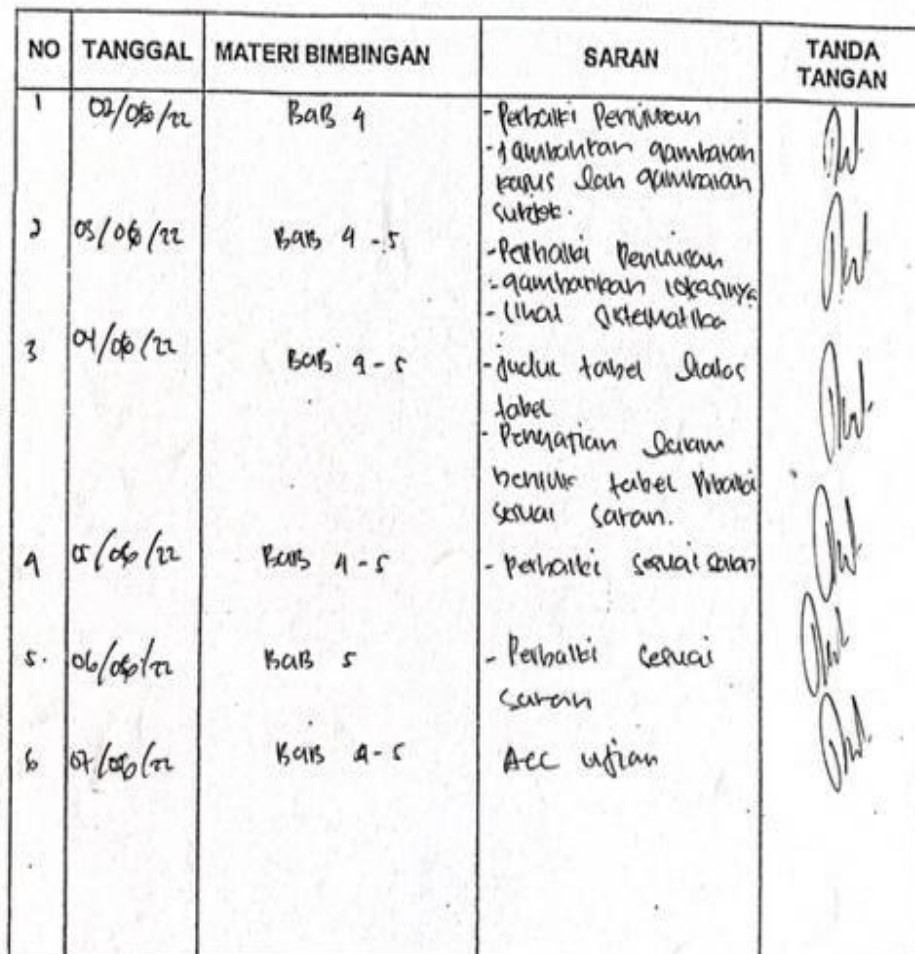 NO TANGGAL MATERI BIMBINGAN SARAN TANDA TANGAN
1 02/ /22 BAB 4 - Perbaiki Penulisan
- tambahkan gambaran
kasus dan gambaran
subjek.
2 03/ /22 BAB 4 - 5 - Perbaiki Penulisan
- gambarkan lokasinya
- lihat sistematika
3 04/ /22 BAB 4 - 5 - judul tabel diatas
tabel
- Penyajian dalam
bentuk tabel Perbaiki
sesuai saran.
4 05/ /22 BAB 4 - 5 - Perbaiki sesuai saran
5. 06/ /22 BAB 5 - Perbaiki sesuai
saran
6 07/ /22 BAB 4 - 5 Acc ujian